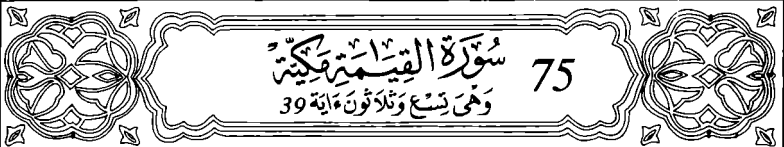 سُورَةُ الْقِيَـٰمَةِ مَكِّيَّةٌ 75
وَهْىَ تِسْعٌ وَثَلَاثُونَ ءَايَة 39